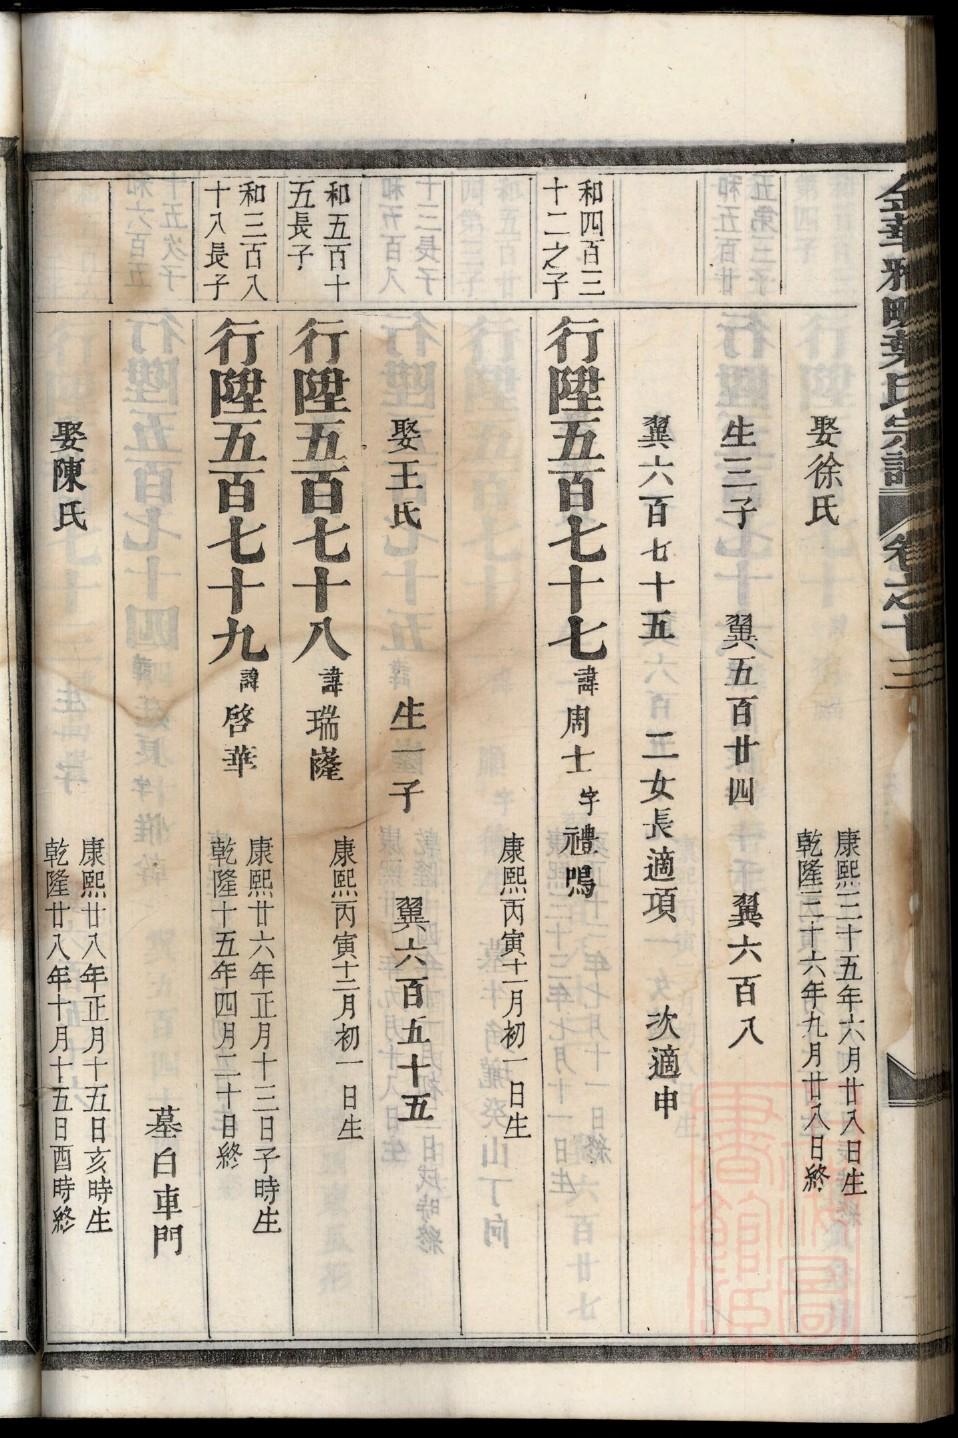 金華雅畈葉氏宗譜 卷之十三
娶徐氏
康熙三十五年六月廿八日生
乾隆三十六年九月廿八日終
生三子 翼五百廿四 翼六百八
翼六百七十五 二女長適項 次適申
和四百三
十二之子
行陞五百七十七 諱周士字禮鳴
康熙丙寅十一月初一日生
娶王氏 生一子 翼六百五十五
和五百十
五長子
行陞五百七十八 諱瑞隆
康熙丙寅十二月初一日生
和三百八
十八長子
行陞五百七十九 諱啓華
康熙廿六年正月十三日子時生
乾隆十五年四月二十日終
墓白車門
娶陳氏
康熙廿八年正月十五日亥時生
乾隆廿八年十月十五日酉時終